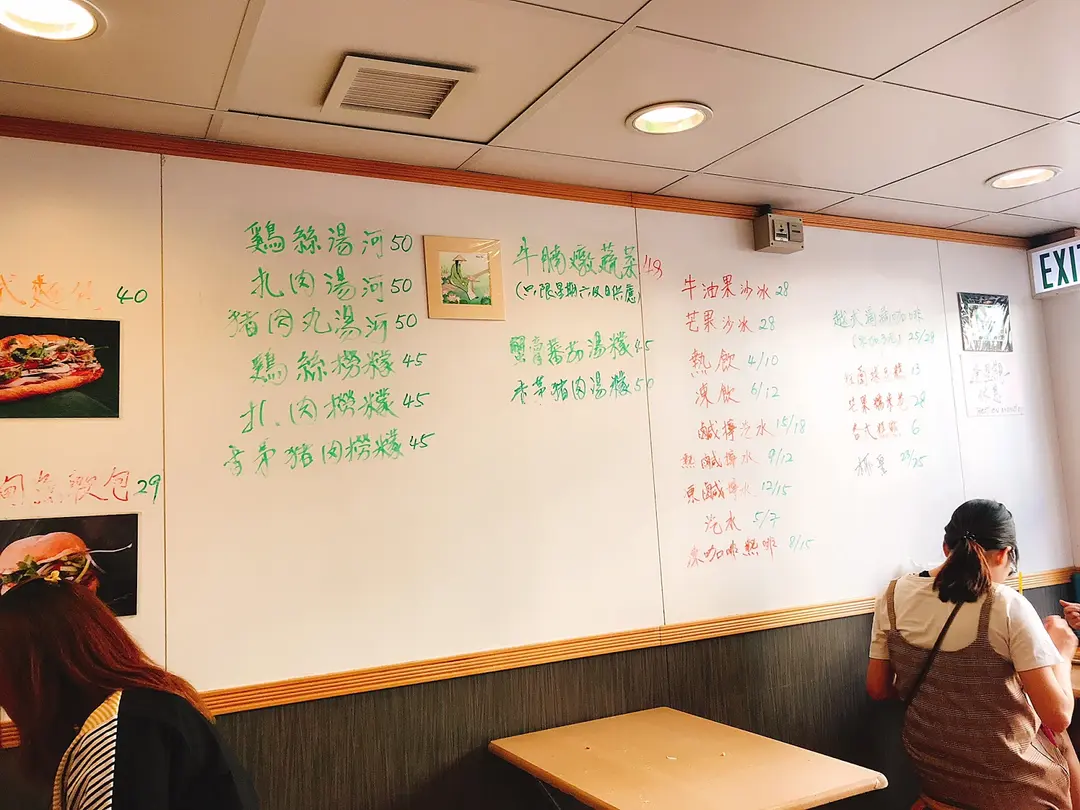 式麵包 40
魚敏包 29
鷄絲湯河 50
扎肉湯河 50
猪肉丸湯河 50
鷄絲撈檬 45
扎肉撈檬 45
香茅猪肉撈檬 45
牛腩燉蔬菜 48
(只限星期六及日供應)
蟹膏番茄湯檬 45
香茅猪肉湯檬 50
牛油果沙冰 28
芒果沙冰 28
熱飲 4/10
凍飲 6/12
鹹檸汽水 15/18
熱鹹檸水 9/12
凍鹹檸水 12/15
汽水 5/7
凍咖啡熱啡 8/15
越式滴滴咖啡
25/28
13
芒果糯米 28
各式 6
23/25
EXIT